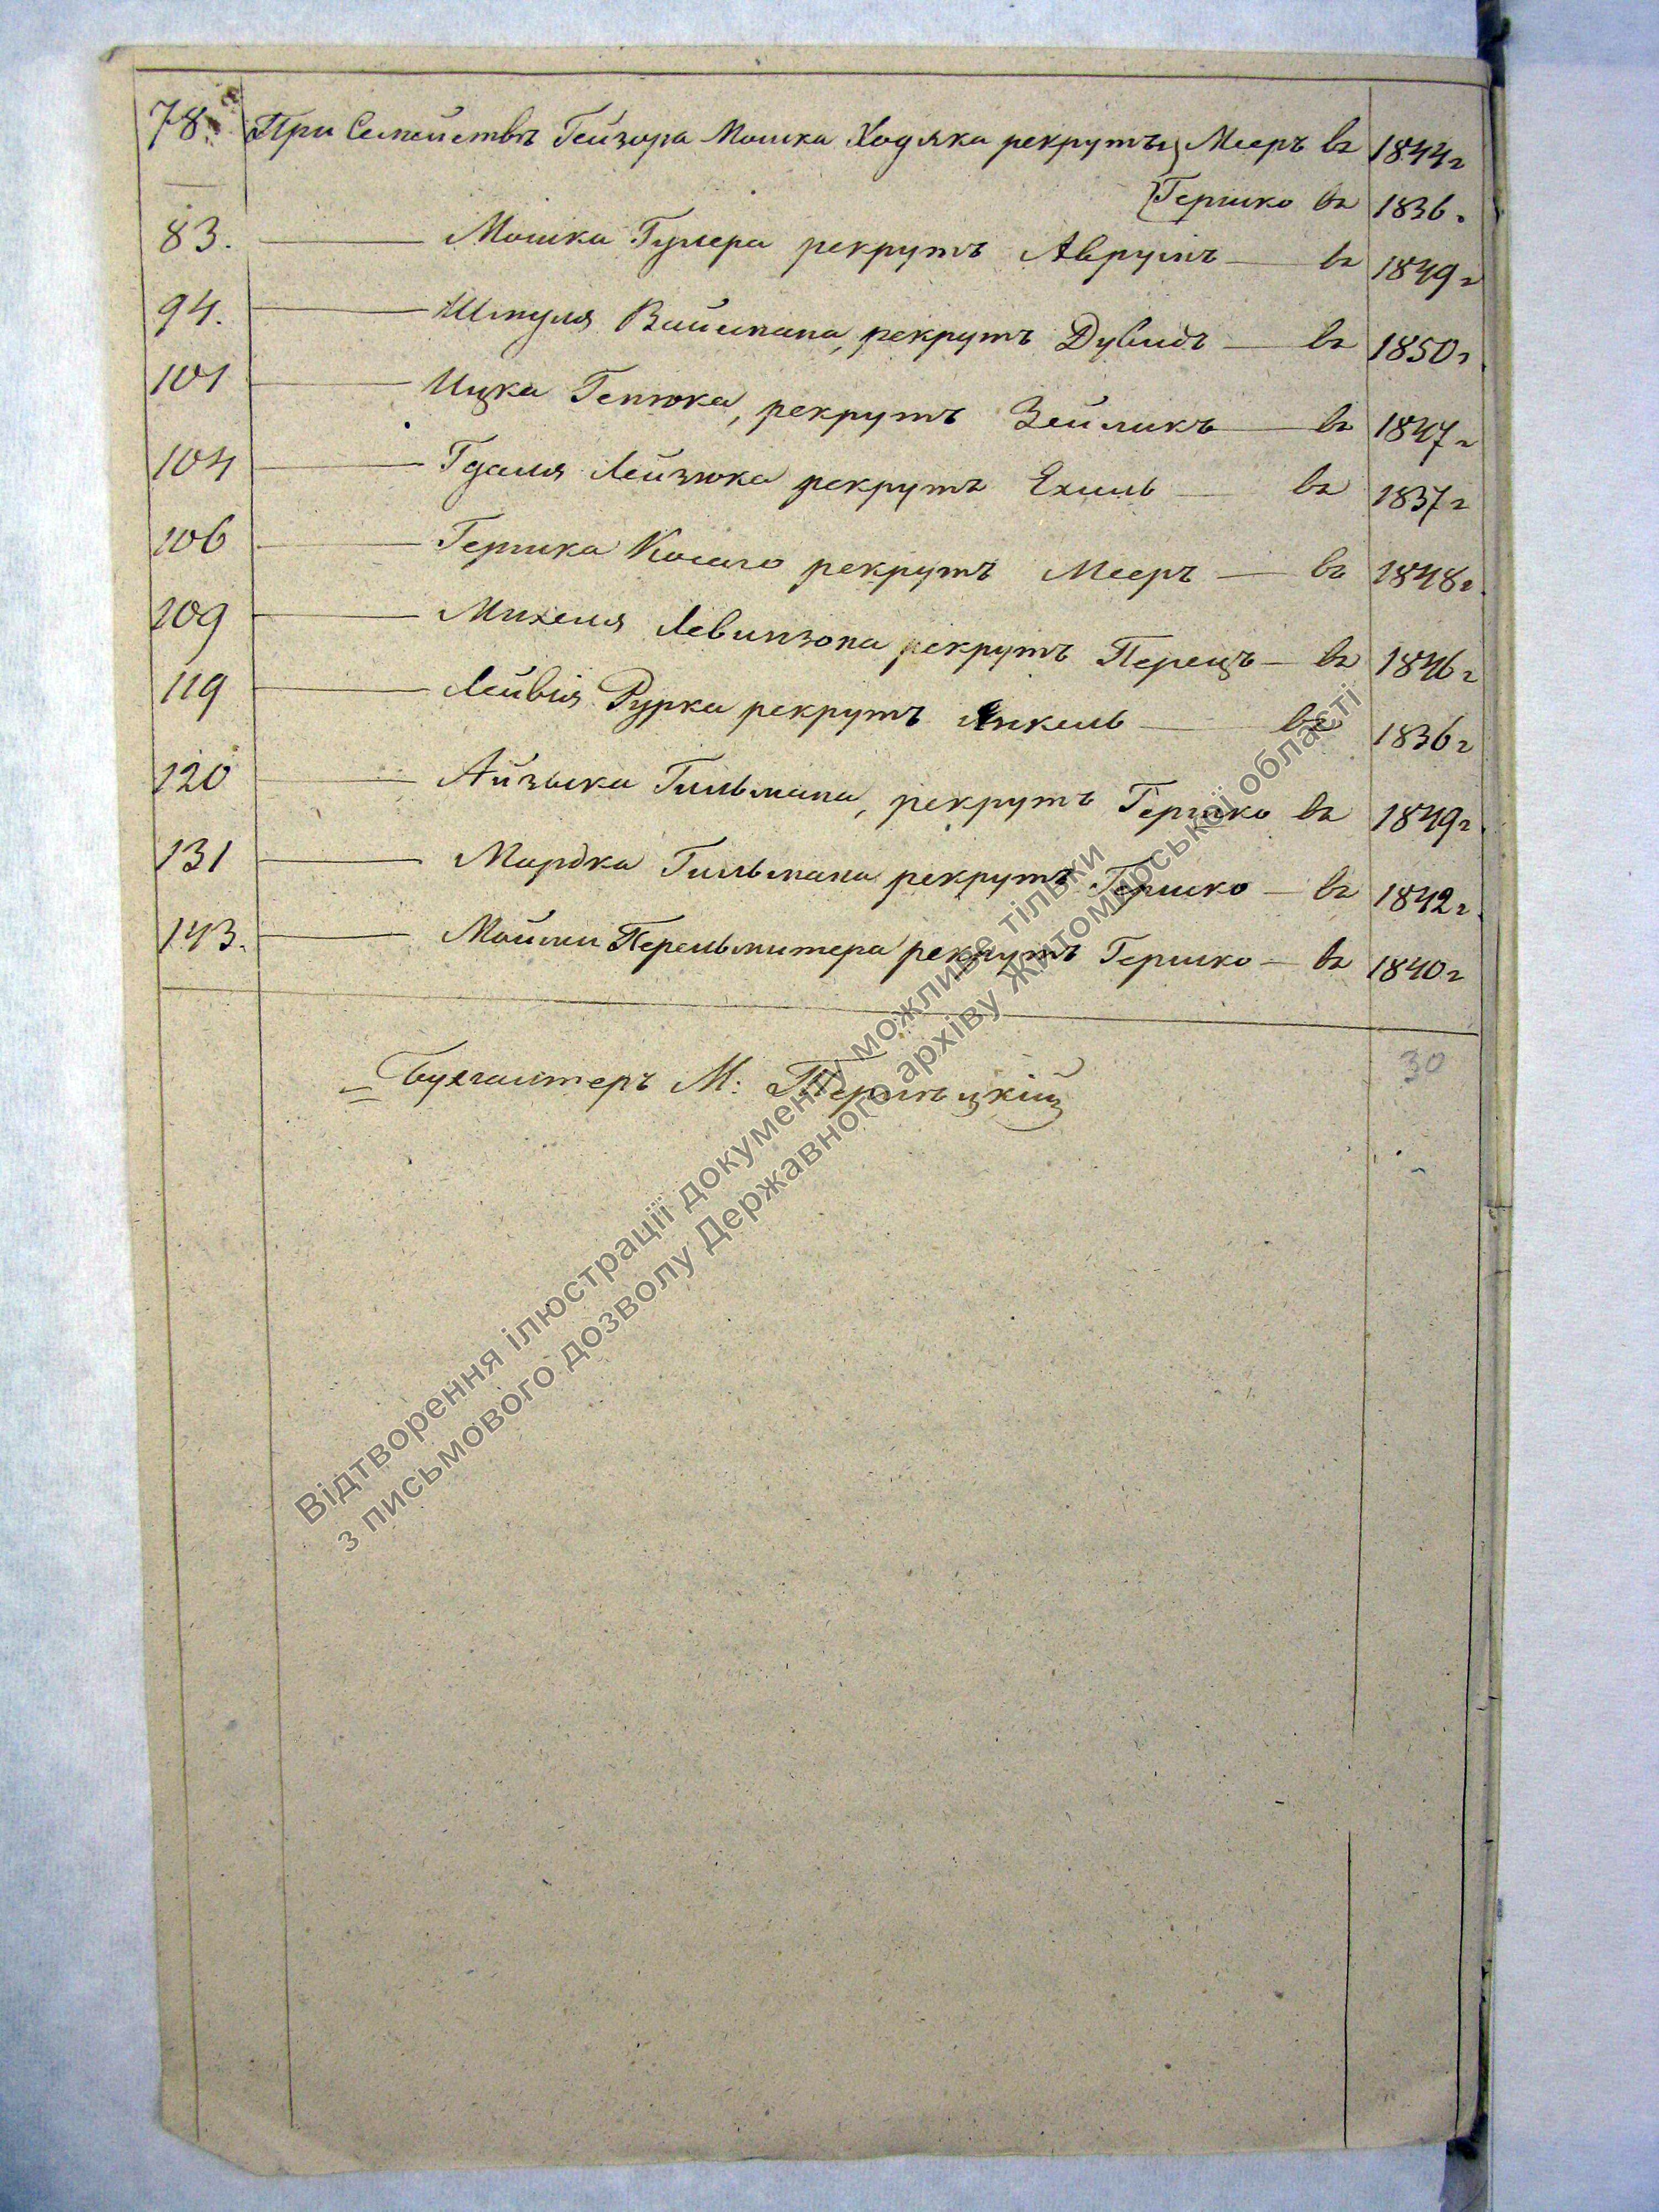 78. При Семействѣ Гейзора Мошка Ходяка рекруты Мееръ въ 1844 г
Гершко въ 1836.
83. — Мошка Гулера рекрутъ Аврумъ — въ 1849 г
94. — Шмуля Вайнмана, рекрутъ Дувидъ — въ 1850 г.
101 — Ицка Генюка, рекрутъ Зейликъ — въ 1847 г
104 — Гдаля Лейзюка рекрутъ Ехиль — въ 1837 г
106 — Гершка Косаго рекрутъ Мееръ — въ 1848 г.
109 — Михеля Левинзона рекрутъ Перецъ — въ 1846 г
119 — Лейвія Рурка рекрутъ Янкель — въ 1836 г
120 — Айзыка Гильмана, рекрутъ Гершко въ 1849 г.
131 — Мардка Гильмана рекрутъ Гершко — въ 1842 г.
143. — Мошки Перельмитера рекрутъ Гершко — въ 1840 г
30
Бухгалтеръ М:
Відтворення ілюстрації документу можливе тільки
з письмового дозволу Державного архіву Житомирської області